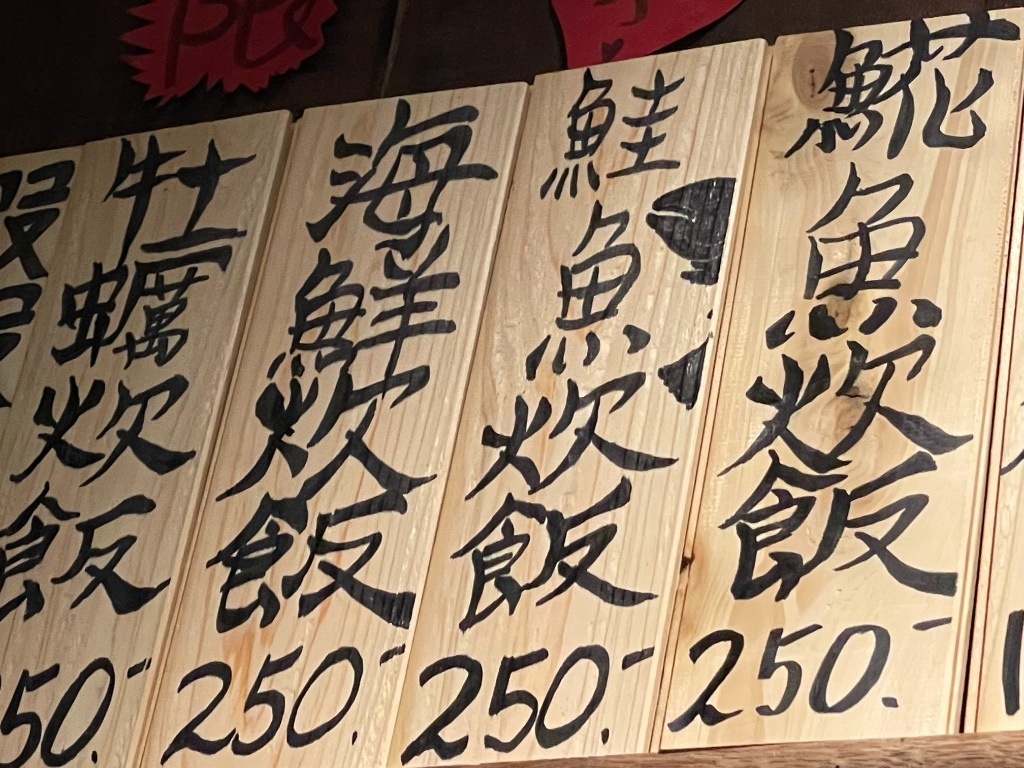 牡蠣炊飯
250.-
海鮮炊飯
250.-
鮭魚炊飯
250.-
魚花魚炊飯
250.-